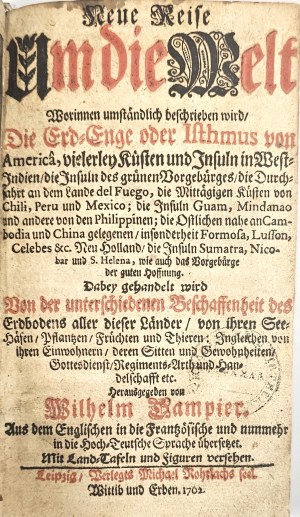 Neue Reise
Um die Welt
Worinnen umständlich beschrieben wird/
Die Erd-Enge oder Isthmus von
Americâ, vielerley Küsten und Insuln in West-
Indien/die Insuln des grünen Vorgebürges/die Durch-
fahrt an dem Lande del Fuego, die Mittägigen Küsten von
Chili, Peru und Mexico; die Insuln Guam, Mindanao
und andere von den Philippinen; die Ostlichen nahe an Cam-
bodia und China gelegenen / insonderheit Formosa, Lusson,
Celebes &c. Neu Holland/ die Insuln Sumatra, Nico-
bar und S. Helena, wie auch das Vorgebürge
der guten Hoffnung.
Dabey gehandelt wird
Von der unterschiedenen Beschaffenheit des
Erdbodens aller dieser Länder / von ihren See-
Häfen/ Pflantzen/ Früchten und Thieren: Ingleichen von
ihren Einwohnern / deren Sitten und Gewohnheiten/
Gottesdienst/Regiments-Arth und Han-
delschafft etc.
Herausgegeben von
Wilhelm Dampier.
Aus dem Englischen in die Frantzösische und nunmehr
in die Hoch-Teutsche Sprache übersetzet.
Mit Land-Tafeln und Figuren versehen.
Leipzig/ Verlegts Michael Rohrlachs seel.
Wittib und Erben, 1702.